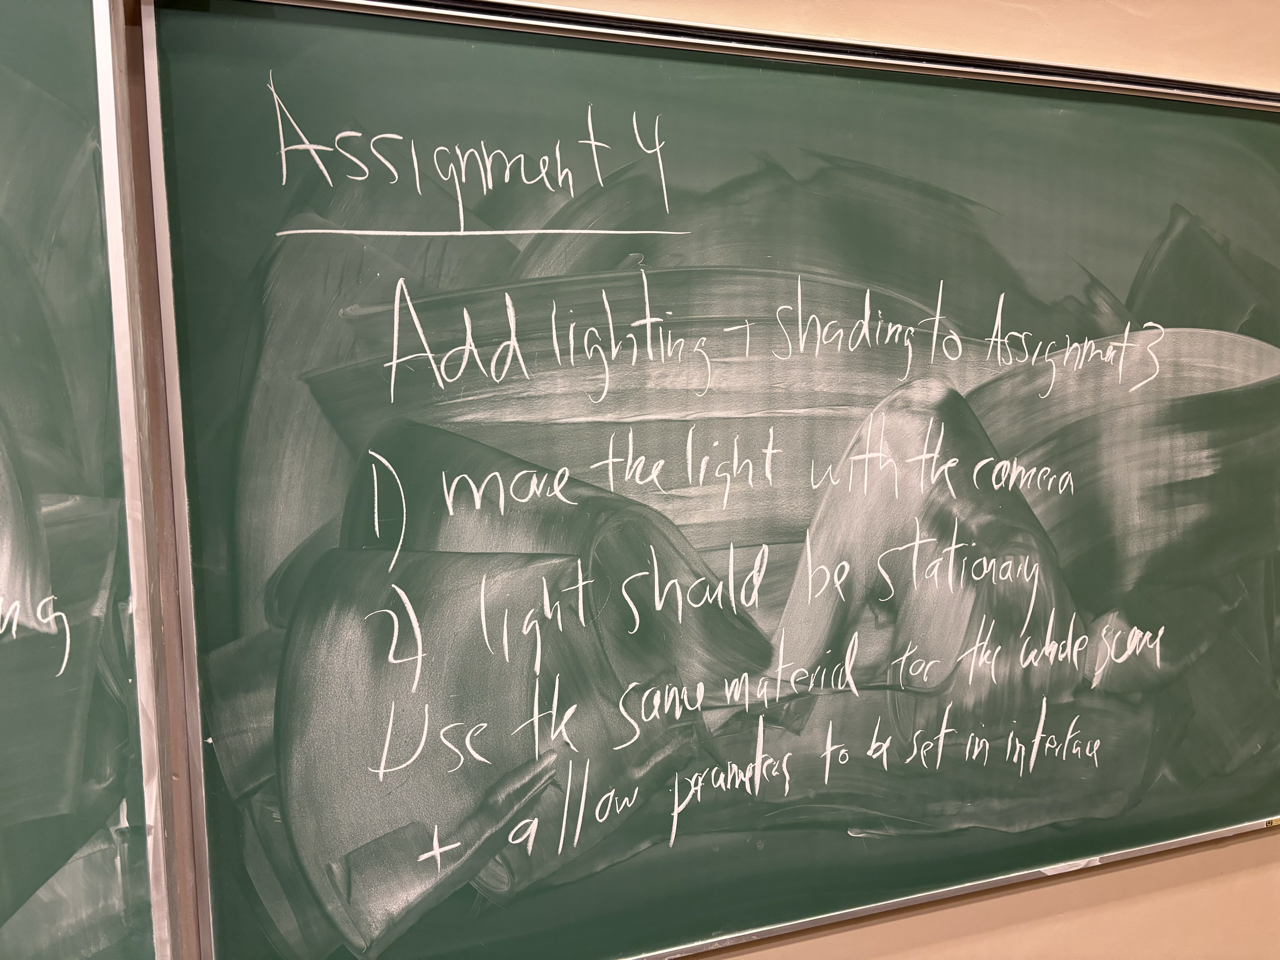 Assignment 4
Add lighting + shading to Assignment 3
1) move the light with the camera
2) light should be stationary
Use the same material for the whole scene
+ allow parameters to be set in interface